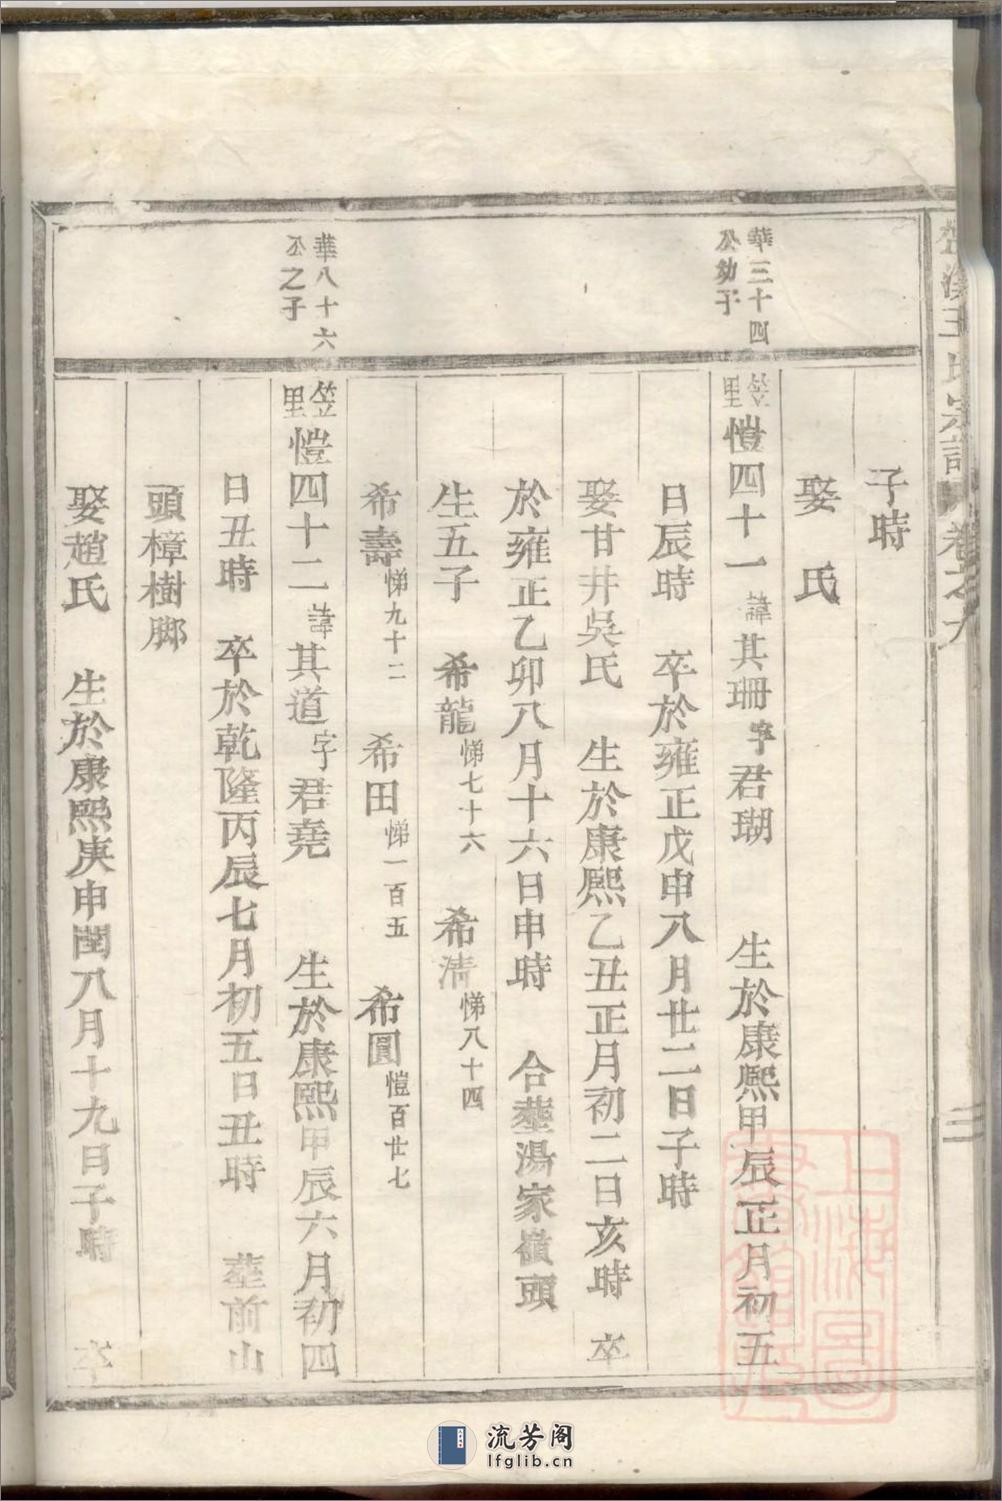 溪王氏宗譜 卷之九
二
子時
娶　氏
華三十四
公幼子
笠里 愷四十一 諱其珊 字君瑚　生於康熙甲辰正月初五
日辰時　卒於雍正戊申八月廿二日子時
娶甘井吳氏　生於康熙乙丑正月初二日亥時　卒
於雍正乙卯八月十六日申時　合塟湯家嶺頭
生五子　希龍 悌七十六　希清 悌八十四
希壽 悌九十二　希田 悌一百五　希圓 愷百廿七
華八十六
公之子
笠里 愷四十二 諱其道 字君堯　生於康熙甲辰六月初四
日丑時　卒於乾隆丙辰七月初五日丑時　塟前山
頭樟樹脚
娶趙氏　生於康熙庚申閏八月十九日子時　卒
上海圖書館藏
流芳阁
lfglib.cn